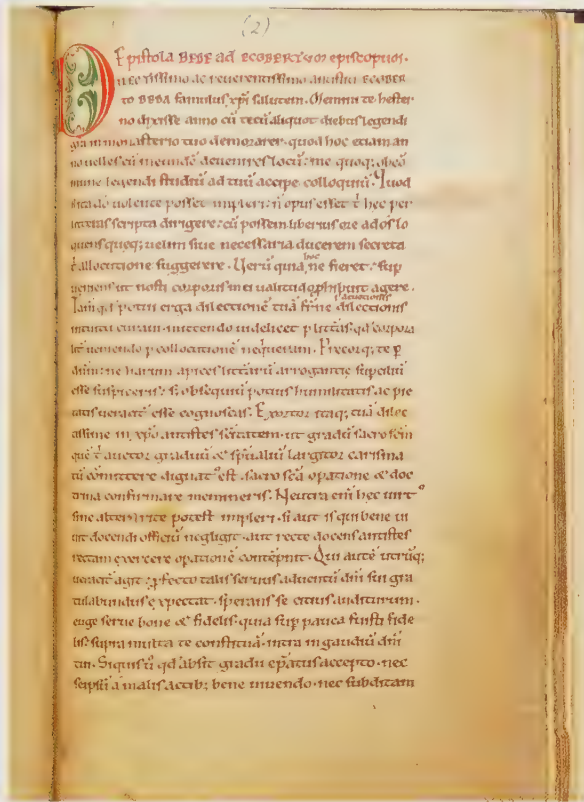 (2)
Epistola BEDE ad ECGBERTUM episcopum.
Dilectissimo ac reuerentissimo antistiti ECGBER
to BEDA famulus xpi salutem. Memini te hester
no dixisse anno cū tecū aliquot diebus legendi
gr̄a in monasterio tuo demorarer. quod hoc etiam an
no uelles cū in eundē deuenires locū: me quoq; ob cō
mune legendi studiū ad tuū accipe colloquiū. Quod
si ita dō uolente posset impleri: n̄ opus esset t̄ hec per
litteras scripta dirigere: cū possem liberius ore ad os lo
quens queq; uelim siue necessaria ducerem secreta
t̄ allocutione suggerere. Uerū quia, hoc ne fieret: sup
ueniens ut nosti corporis mei ualitudo phibuit agere.
Tam qd̄ potui erga dilectionē tuā fr̄ne dilectionis
intuitu curaui. mittendo uidelicet p litt̄as. qd̄ corpora
lit̄ ueniendo p collocutionē neq̄ueram. Precorq; te p
dnm: ne harum apices litterarū arrogantie supciliū
esse suspiceris: s; obsequiū potius humilitatis ac pie
tatis ueracit̄ esse cognoscas. Exortor itaq; tuā dilec
tissime in xpo antistes sc̄itatem. ut gradū sacrosc̄m
quē t̄ auctor graduū & spiritaliū largitor carisma
tū cōmittere dignat' est. sacrosc̄a opatione & doc
trina confirmare memineris. Neutra eni hec uirt'
sine altera rite potest impleri. si aut is qui bene ui
uit docendi officiū negligit. aut recte docens antistes
rectam exercere opationē contēpnit. Qui autē utrūq;
ueracit̄ agit: pfecto talis seruus aduentū dni sui gra
tulabundus expectat. sperans se citius auditurum.
euge serue bone & fidelis. quia sup pauca fuisti fide
lis. supra multa te constituā. intra in gaudiū dni
tui. Siquis u qd̄ absit gradu ep̄atus accepto. nec
seipsū a malis actib; bene uiuendo. nec subditam